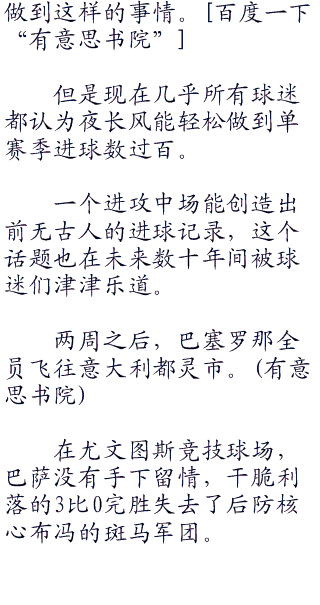 做到这样的事情。[百度一下
“有意思书院”]
但是现在几乎所有球迷
都认为夜长风能轻松做到单
赛季进球数过百。
一个进攻中场能创造出
前无古人的进球记录，这个
话题也在未来数十年间被球
迷们津津乐道。
两周之后，巴塞罗那全
员飞往意大利都灵市。(有意
思书院)
在尤文图斯竞技球场，
巴萨没有手下留情，干脆利
落的3比0完胜失去了后防核
心布冯的斑马军团。